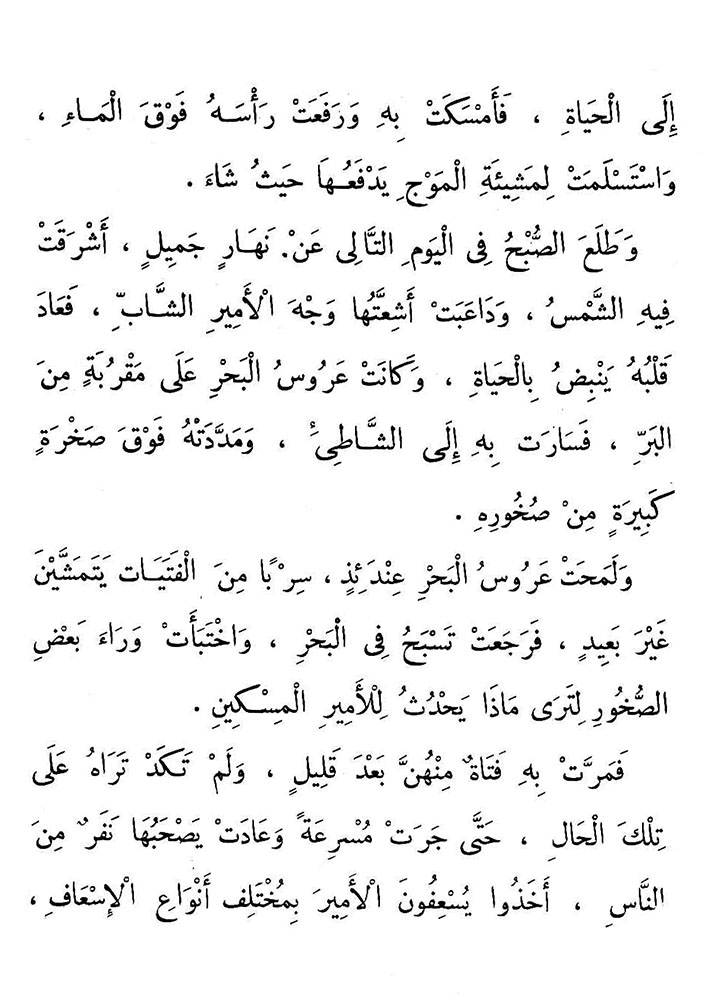 إِلَى الْحَيَاةِ ، فَأَمْسَكَتْ بِهِ وَرَفَعَتْ رَأْسَهُ فَوْقَ الْمَاءِ ،
وَاسْتَسْلَمَتْ لِمَشِيئَةِ الْمَوْجِ يَدْفَعُهَا حَيْثُ شَاءَ .
وَطَلَعَ الصُّبْحُ فِى الْيَوْمِ التَّالِى عَنْ نَهَارٍ جَمِيلٍ ، أَشْرَقَتْ
فِيهِ الشَّمْسُ ، وَدَاعَبَتْ أَشِعَّتُهَا وَجْهَ الْأَمِيرِ الشَّابِّ ، فَعَادَ
قَلْبُهُ يَنْبِضُ بِالْحَيَاةِ ، وَكَانَتْ عَرُوسُ الْبَحْرِ عَلَى مَقْرُبَةٍ مِنَ
الْبَرِّ ، فَسَارَت بِهِ إِلَى الشَّاطِئِ ، وَمَدَّدَتْهُ فَوْقَ صَخْرَةٍ
كَبِيرَةٍ مِنْ صُخُورِهِ .
وَلَمَحَتْ عَرُوسُ الْبَحْرِ عِنْدَئِذٍ ، سِرْبًا مِنَ الْفَتَيَات يَتَمَشَّيْنَ
غَيْرَ بَعِيدٍ ، فَرَجَعَتْ تَسْبَحُ فِى الْبَحْرِ ، وَاخْتَبَأَتْ وَرَاءَ بَعْضِ
الصُّخُورِ لِتَرَى مَاذَا يَحْدُثُ لِلْأَمِيرِ الْمِسْكِينِ .
فَمَرَّتْ بِهِ فَتَاةٌ مِنْهُنَّ بَعْدَ قَلِيلٍ ، وَلَمْ تَكَدْ تَرَاهُ عَلَى
تِلْكَ الْحَالِ ، حَتَّى جَرَتْ مُسْرِعَةً وَعَادَتْ يَصْحَبُهَا نَفَرٌ مِنَ
النَّاسِ ، أَخَذُوا يُسْعِفُونَ الْأَمِيرَ بِمُخْتَلِف أَنْوَاعِ الْإِسْعَافِ ،